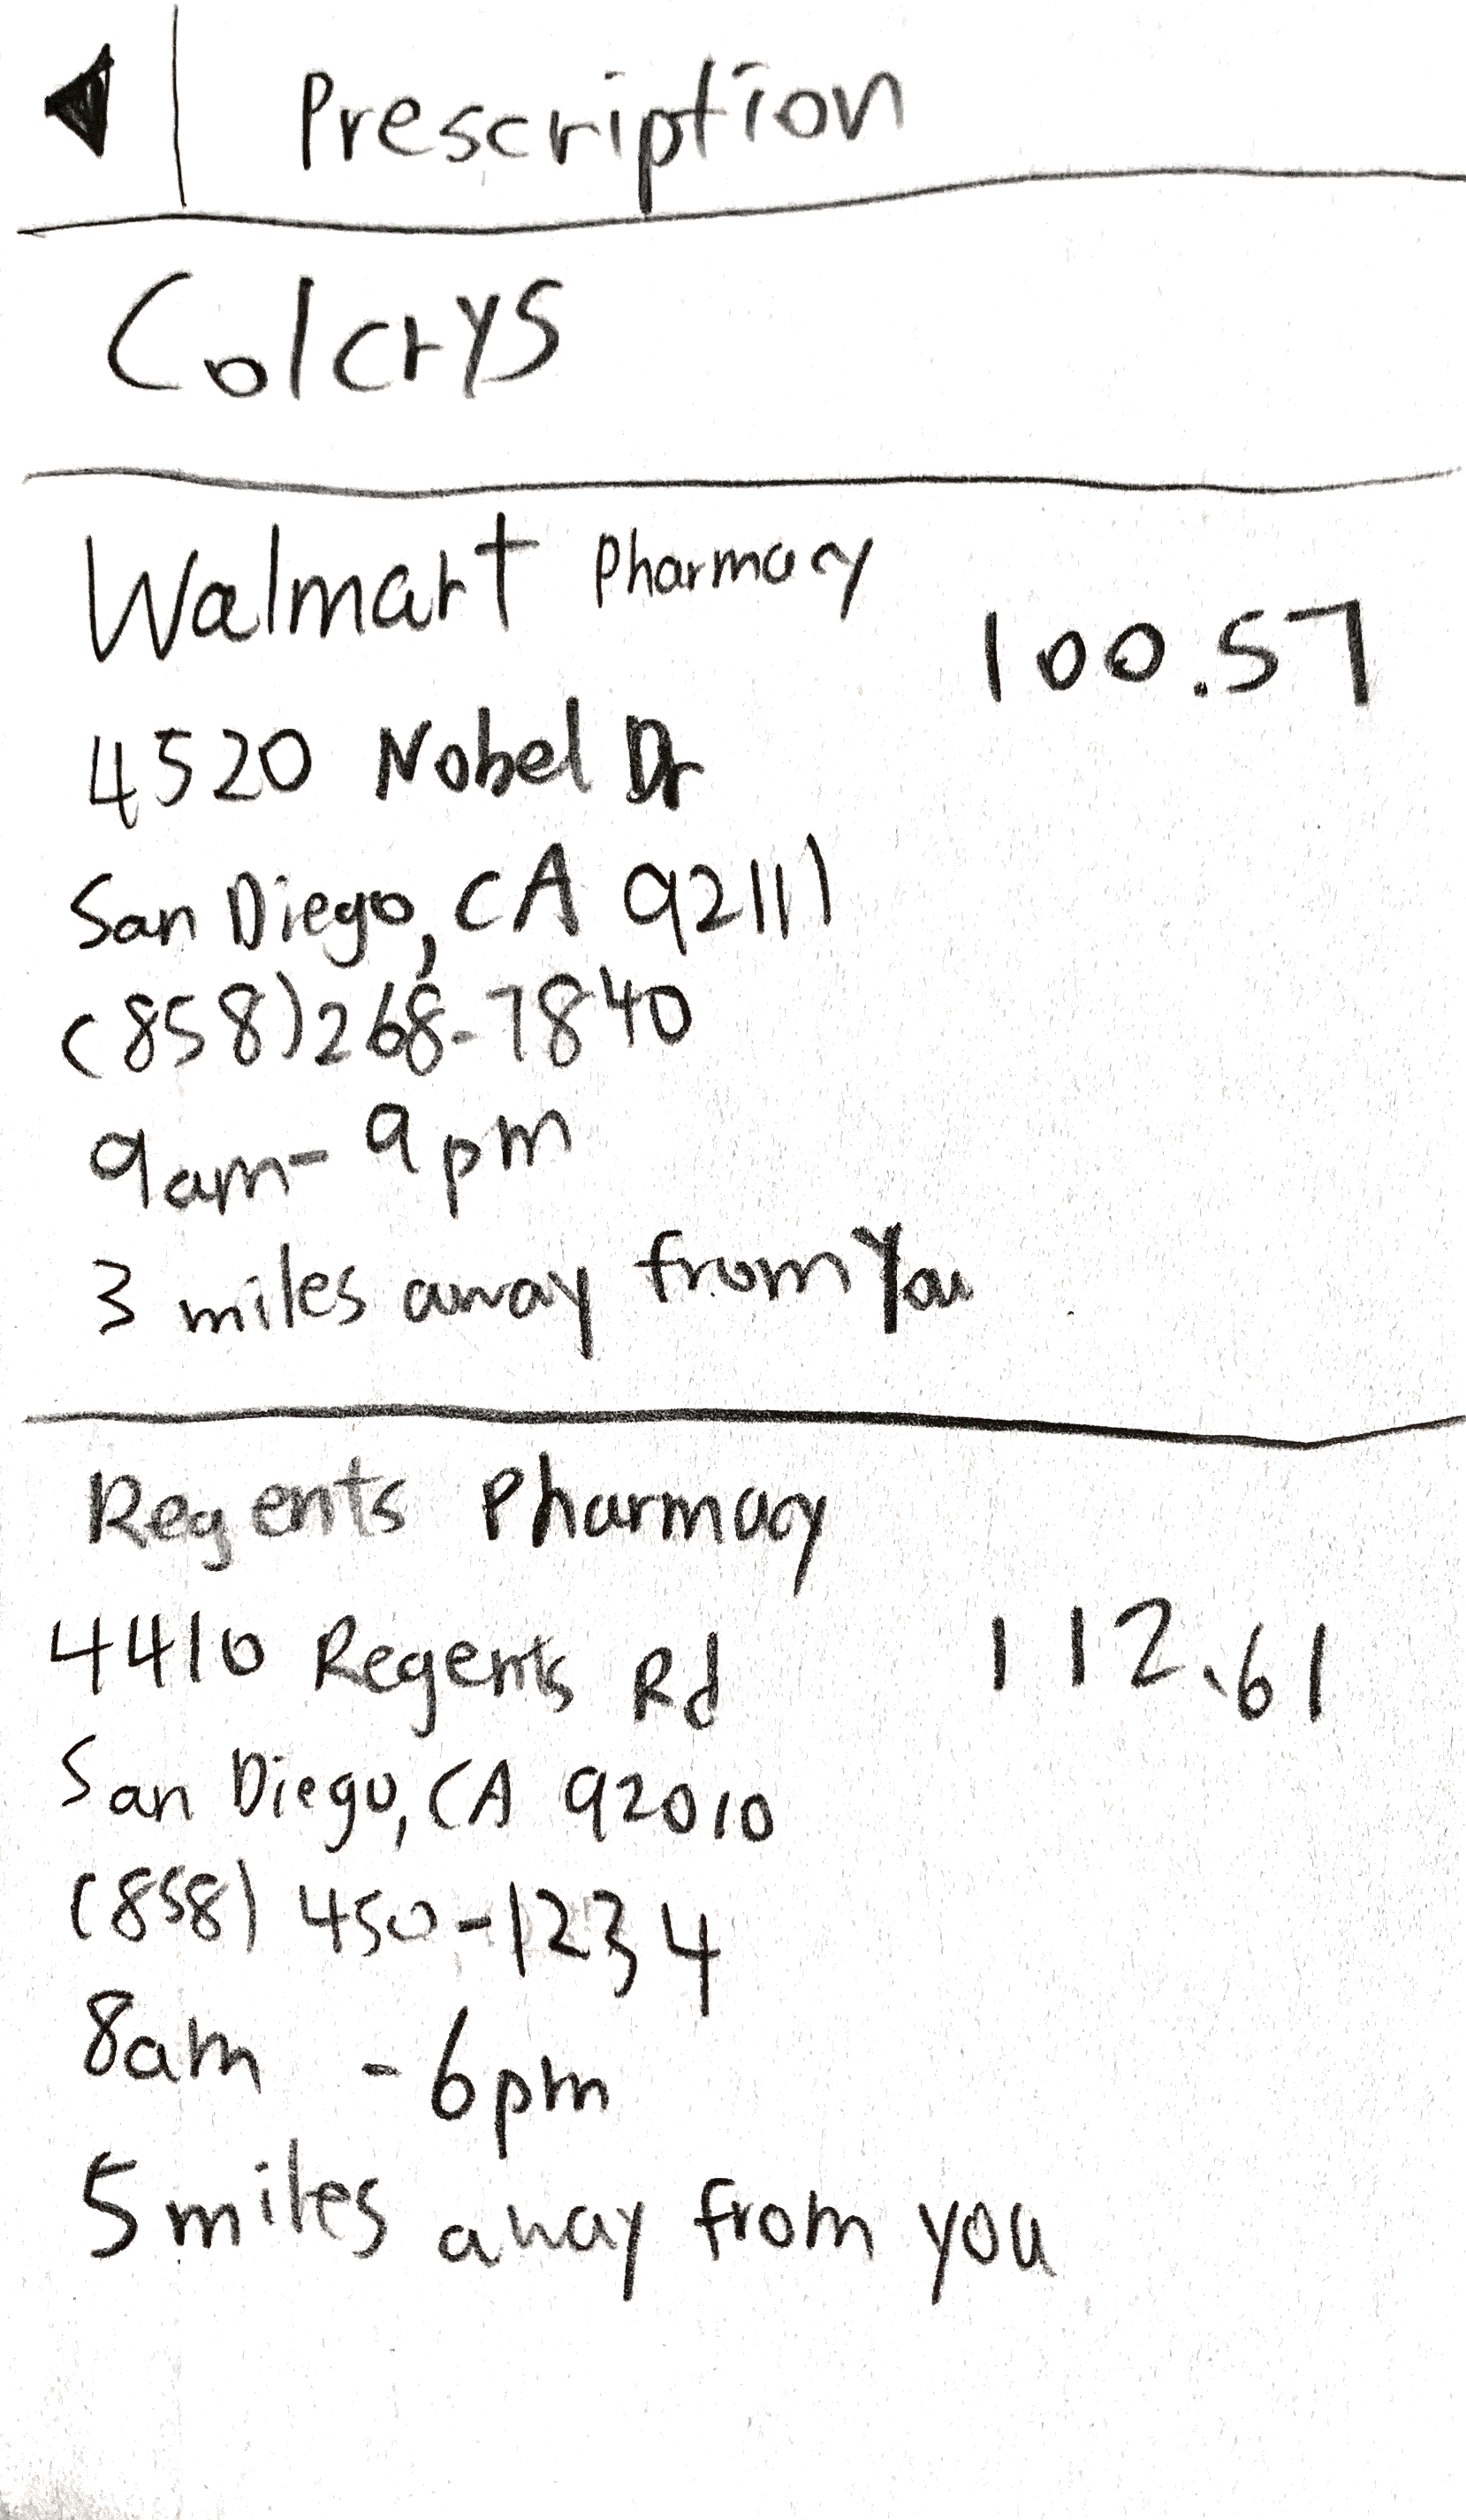 Prescription
Colcrys
Walmart Pharmacy
100.57
4520 Nobel Dr
San Diego, CA 92111
(858)268-7840
9am- 9pm
3 miles away from You
Regents Pharmacy
4410 Regents Rd
112.61
San Diego, CA 92010
(858) 450-1234
8am - 6pm
5 miles away from you